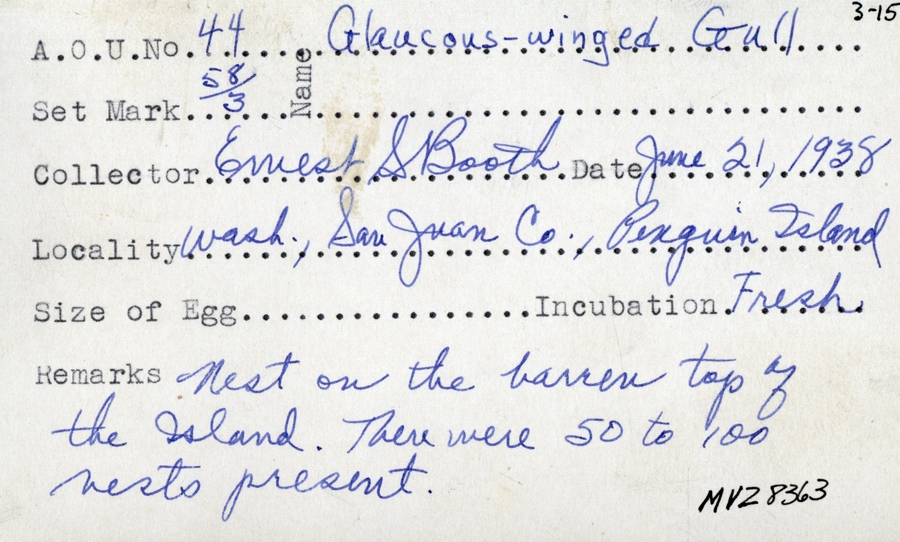 3-15
A.O.U.No. 44 Name Glaucous-winged Gull
Set Mark 58/3
Collector Ernest S Booth Date June 21, 1938
Locality Wash., San Juan Co., Penguin Island
Size of Egg Incubation Fresh
Remarks Nest on the barren top of
the Island. There were 50 to 100
nests present.
MVZ 8363